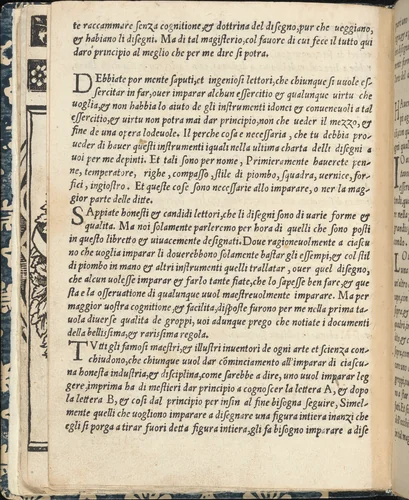 te raccammare senza cognitione, & dottrina del disegno, pur che ueggiano,
& habiano li disegni. Ma di tal magisterio, col fauore di cui fece il tutto qui
daro principio al meglio che per me dire si potra.
DEbbiate por mente saputi, et ingeniosi lettori, che chiunque si uuole es-
sercitar in far, ouer imparar alchun essercitio & qualunque uirtu che
uoglia, & non habbia lo aiuto de gli instrumenti idonei & conueneuoli a tal
essercitio, & uirtu non potra mai dar principio, non che ueder il mezzo, &
fine de una opera lodeuole. Il perche cosa e necessaria, che tu debbia pro-
ueder di hauer questi instrumenti iquali nella ultima charta delli disegni a
uoi per me depinti. Et tali sono per nome, Primieramente hauerete pen-
ne, temperatore, righe, compasso, stile di piombo, squadra, uernice, for-
fici, ingiostro. Et queste cose sono necessarie allo imparare, o ner la mag-
gior parte delle ditte.
SAppiate honesti & candidi lettori, che li disegni sono di uarie forme &
qualita. Ma noi solamente parleremo per hora di quelli che sono posti
in questo libretto & uiuacemente designati. Doue ragioneuolmente a ciascu
no che uoglia imparar li douerebbono solamente bastar gli essempi, & col stil
di piombo in mano & altri instrumenti quelli trallatar, ouer quel disegno,
che alcun uolesse imparar & farlo tante fiate, che lo sapesse ben fare, & que
sta e la osseruatione di qualunque uuol maestreuolmente imparare. Ma per
maggior uostra cognitione, & facilita, disposte furono per me nella prima ta
uola diuerse qualita de groppi, uoi adunque prego che notiate i documenti
della bellissima, & rarissima regola.
TVtti gli famosi maestri, & illustri inuentori de ogni arte et scienza con-
chiudono, che chiunque uuol dar cominciamento all'imparar di ciascu-
na honesta industria, & disciplina, come sarebbe a dire, uno uuol imparar leg
gere, imprima ha di mestieri dar principio a cognoscer la lettera A, & dopo
la lettera B, & cosi dal principio per insin al fine bisogna seguire, Simel-
mente quelli che uogliono imparare a disegnare una figura intiera inanzi che
egli si porga a tirar fuori detta figura intiera, gli fa bisogno imparare a dise